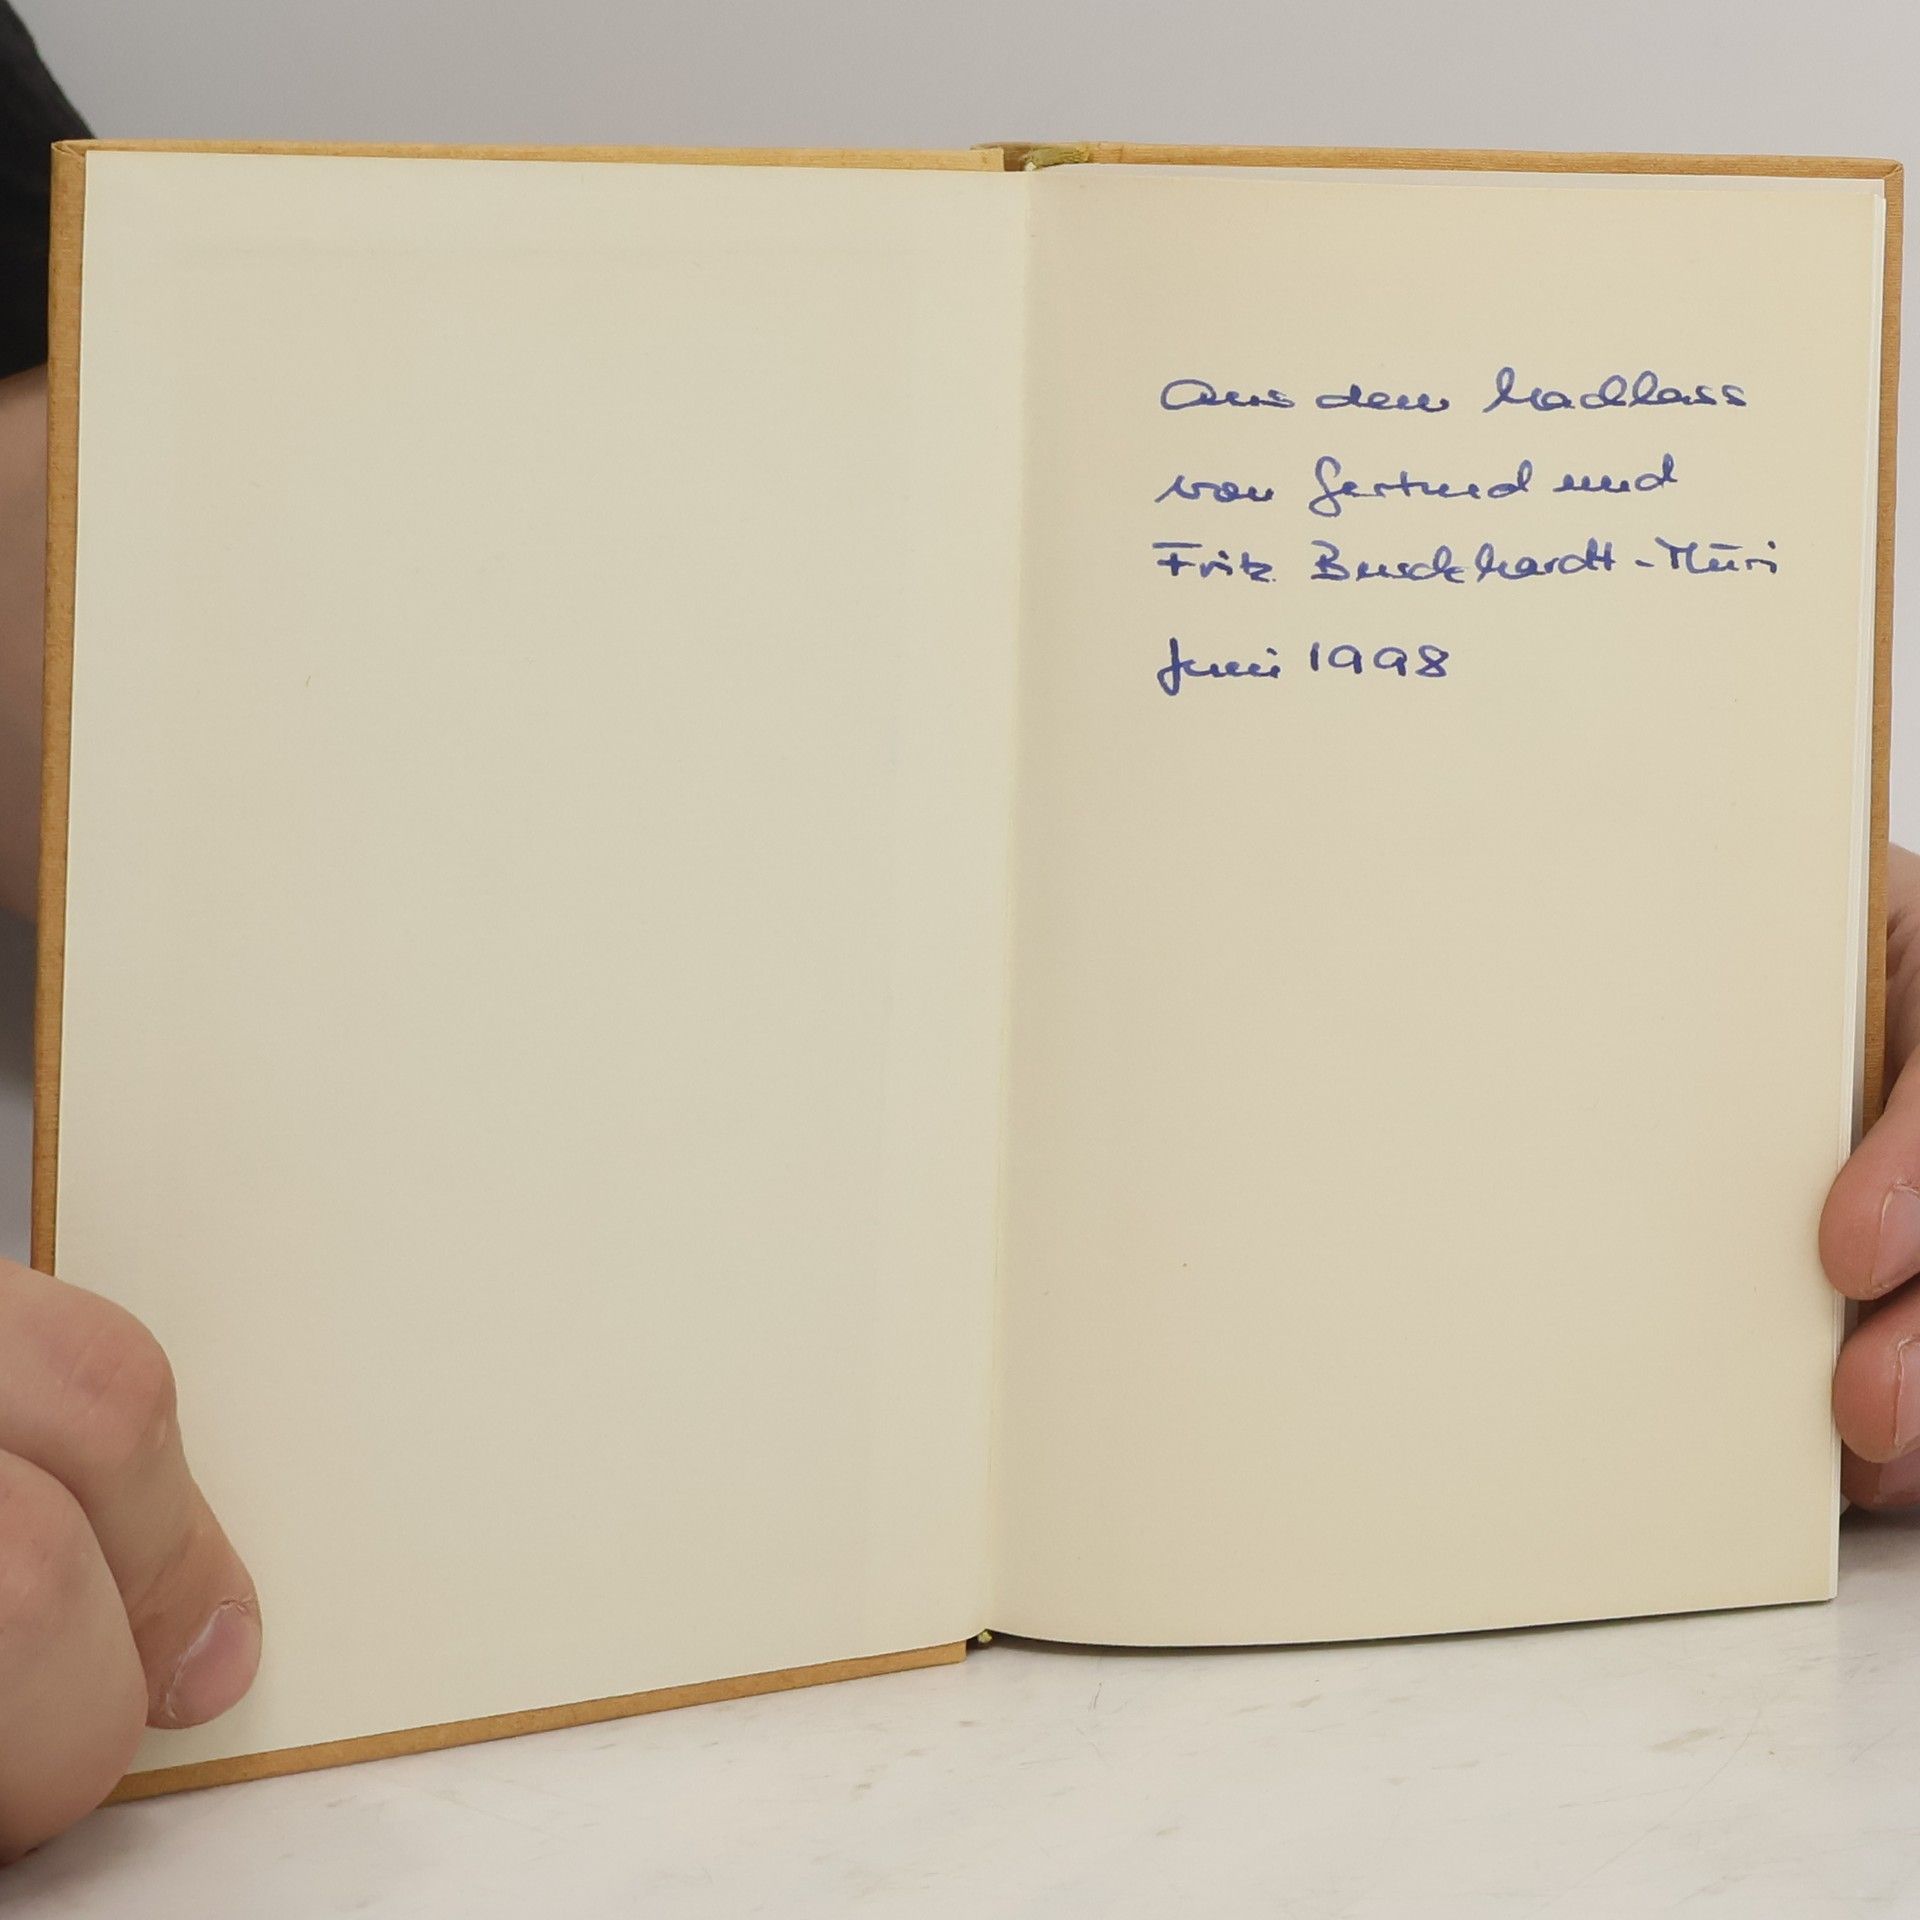 Aus dem Nachlass
von Gertrud und
Fritz Burckhardt-Müri
Juni 1998